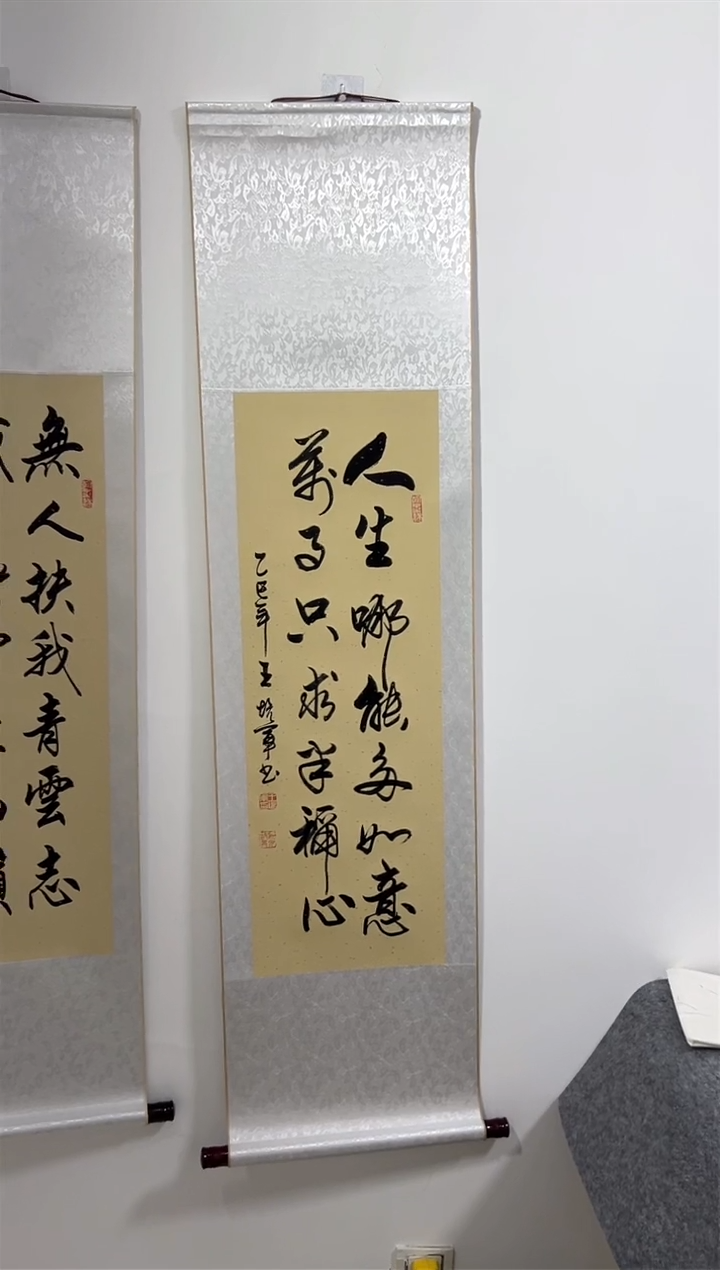 人生哪能多如意
萬事只求半稱心
乙巳年王培軍书
無人扶我青雲志